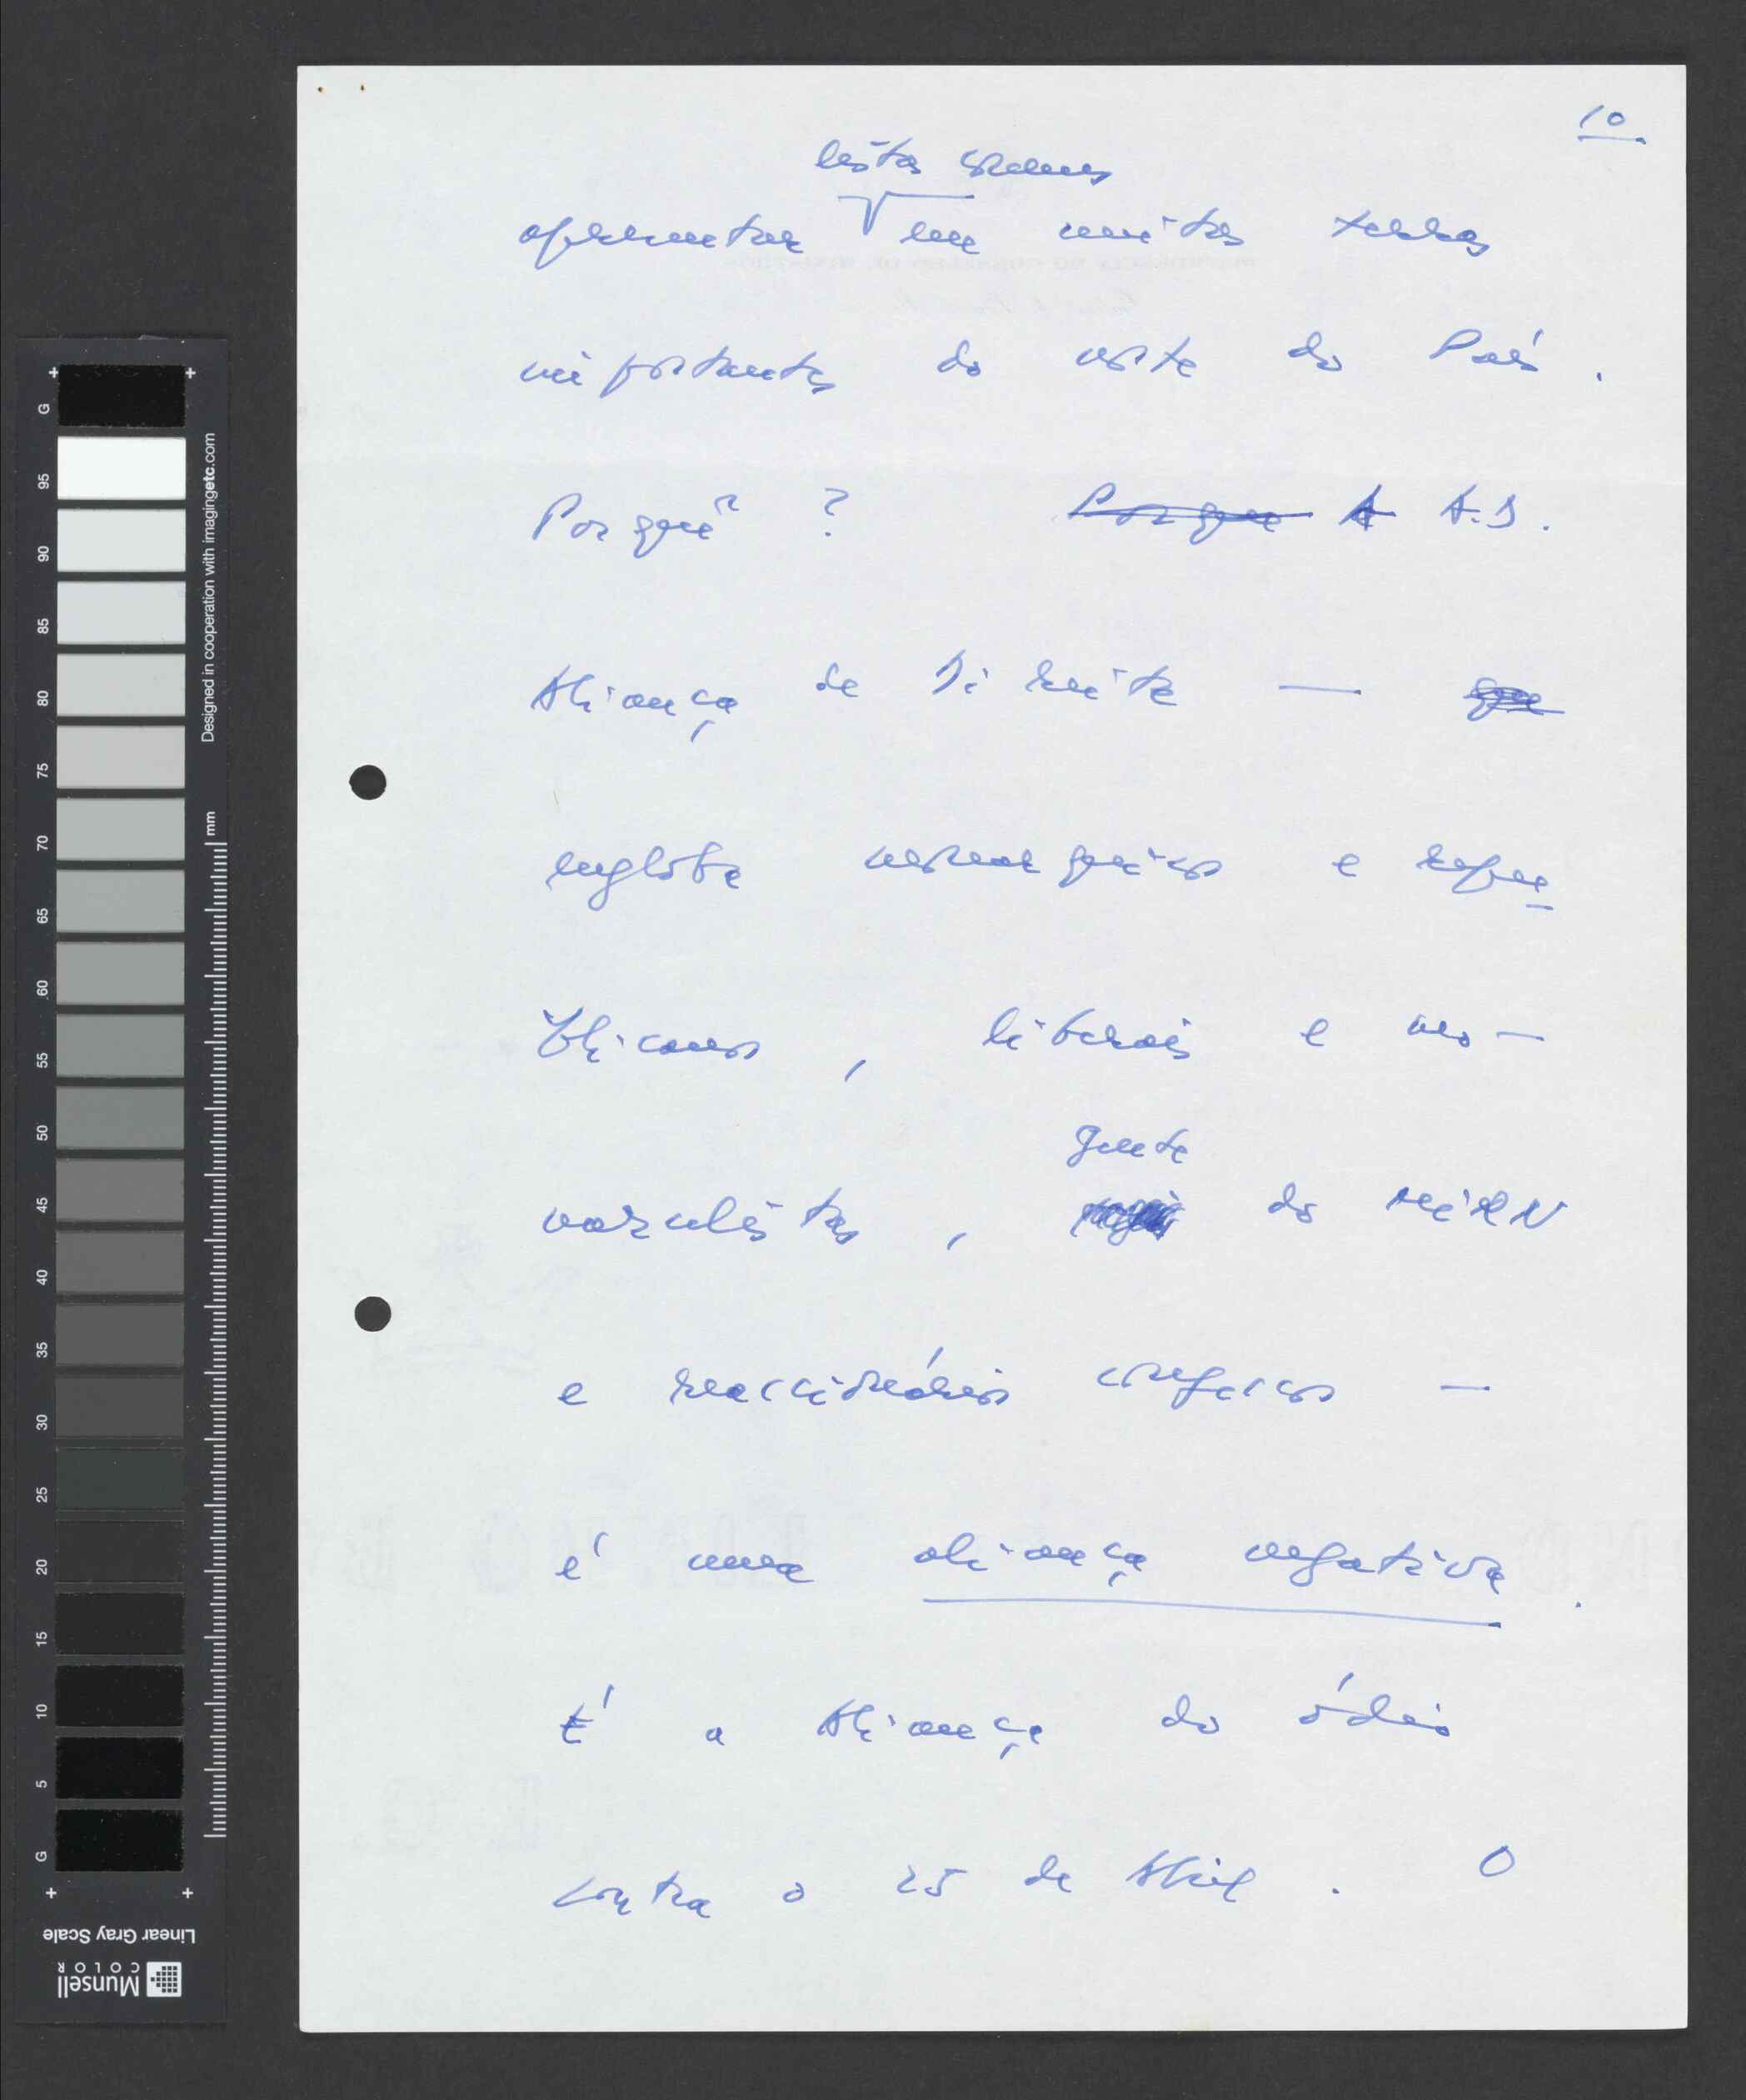 10
listas comuns
apresentar em muitas terras
importantes do norte do País.
Porquê? Porque A A.D.
Aliança de Direita — que
engloba monárquicos e repu
blicanos, liberais e neo-
gente
vazulistas, do MIRN
e reaccionários confessos —
é uma aliança negativa.
É a Aliança do ódio
contra o 25 de Abril. O
G
95
90
85
80
75
70
65
60
55
50
45
40
35
30
25
20
15
10
5
G
mm
Designed in cooperation with imagingetc.com
Linear Gray Scale
Munsell
COLOR